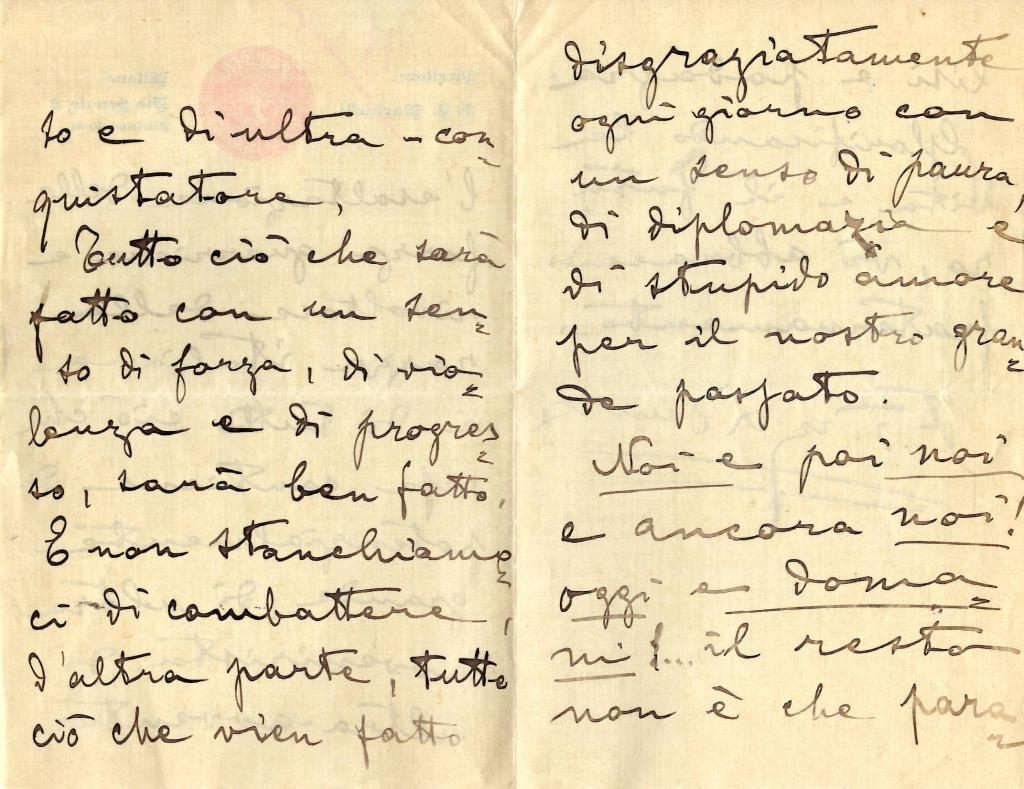 to e di ultra-con=
quistatore,
Tutto ciò che sarà
fatto con un sen=
so di forza, di vio=
lenza e di progres=
so, sarà ben fatto.
E non stanchiamo=
ci di combattere,
d'altra parte, tutto
ciò che vien fatto
disgraziatamente
ogni giorno con
un senso di paura,
di diplomazia e
di stupido amore
per il nostro gran=
de passato.
Noi e poi noi
e ancora noi!
oggi e doma=
ni!... il resto
non è che para=